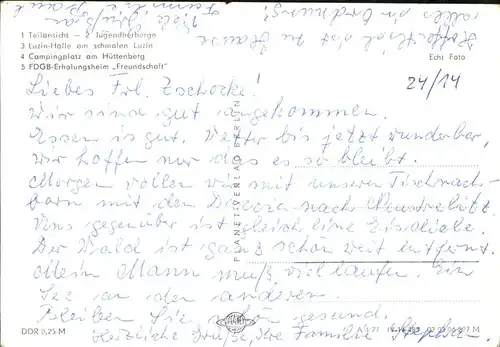 1 Teilansicht — 2 Jugendherberge
3 Luzin-Halle am schmalen Luzin
4 Campingplatz am Hüttenberg
5 FDGB-Erholungsheim „Freundschaft"
Echt Foto
24/14
Liebes Frl. Zschocke!
Wir sind gut angekommen.
Essen ist gut. Wetter bis jetzt wunderbar,
wir hoffen nur das es so bleibt.
Morgen wollen wir mit unseren Tischnach-
barn mit dem nach Neustrelitz
Uns gegenüber ist gleich eine Eisdiele.
Der Wald ist ganz schön weit entfernt.
Mein Mann muß viel laufen. Ein
See an den anderen.
Bleiben Sie schön gesund.
Herzliche Grüße, Ihre Familie
Hoffentlich ist zu Hause
alles in Ordnung!
Viele Grüße an
Familie
PLANET-VERLAG BERLIN
DDR 0,25 M